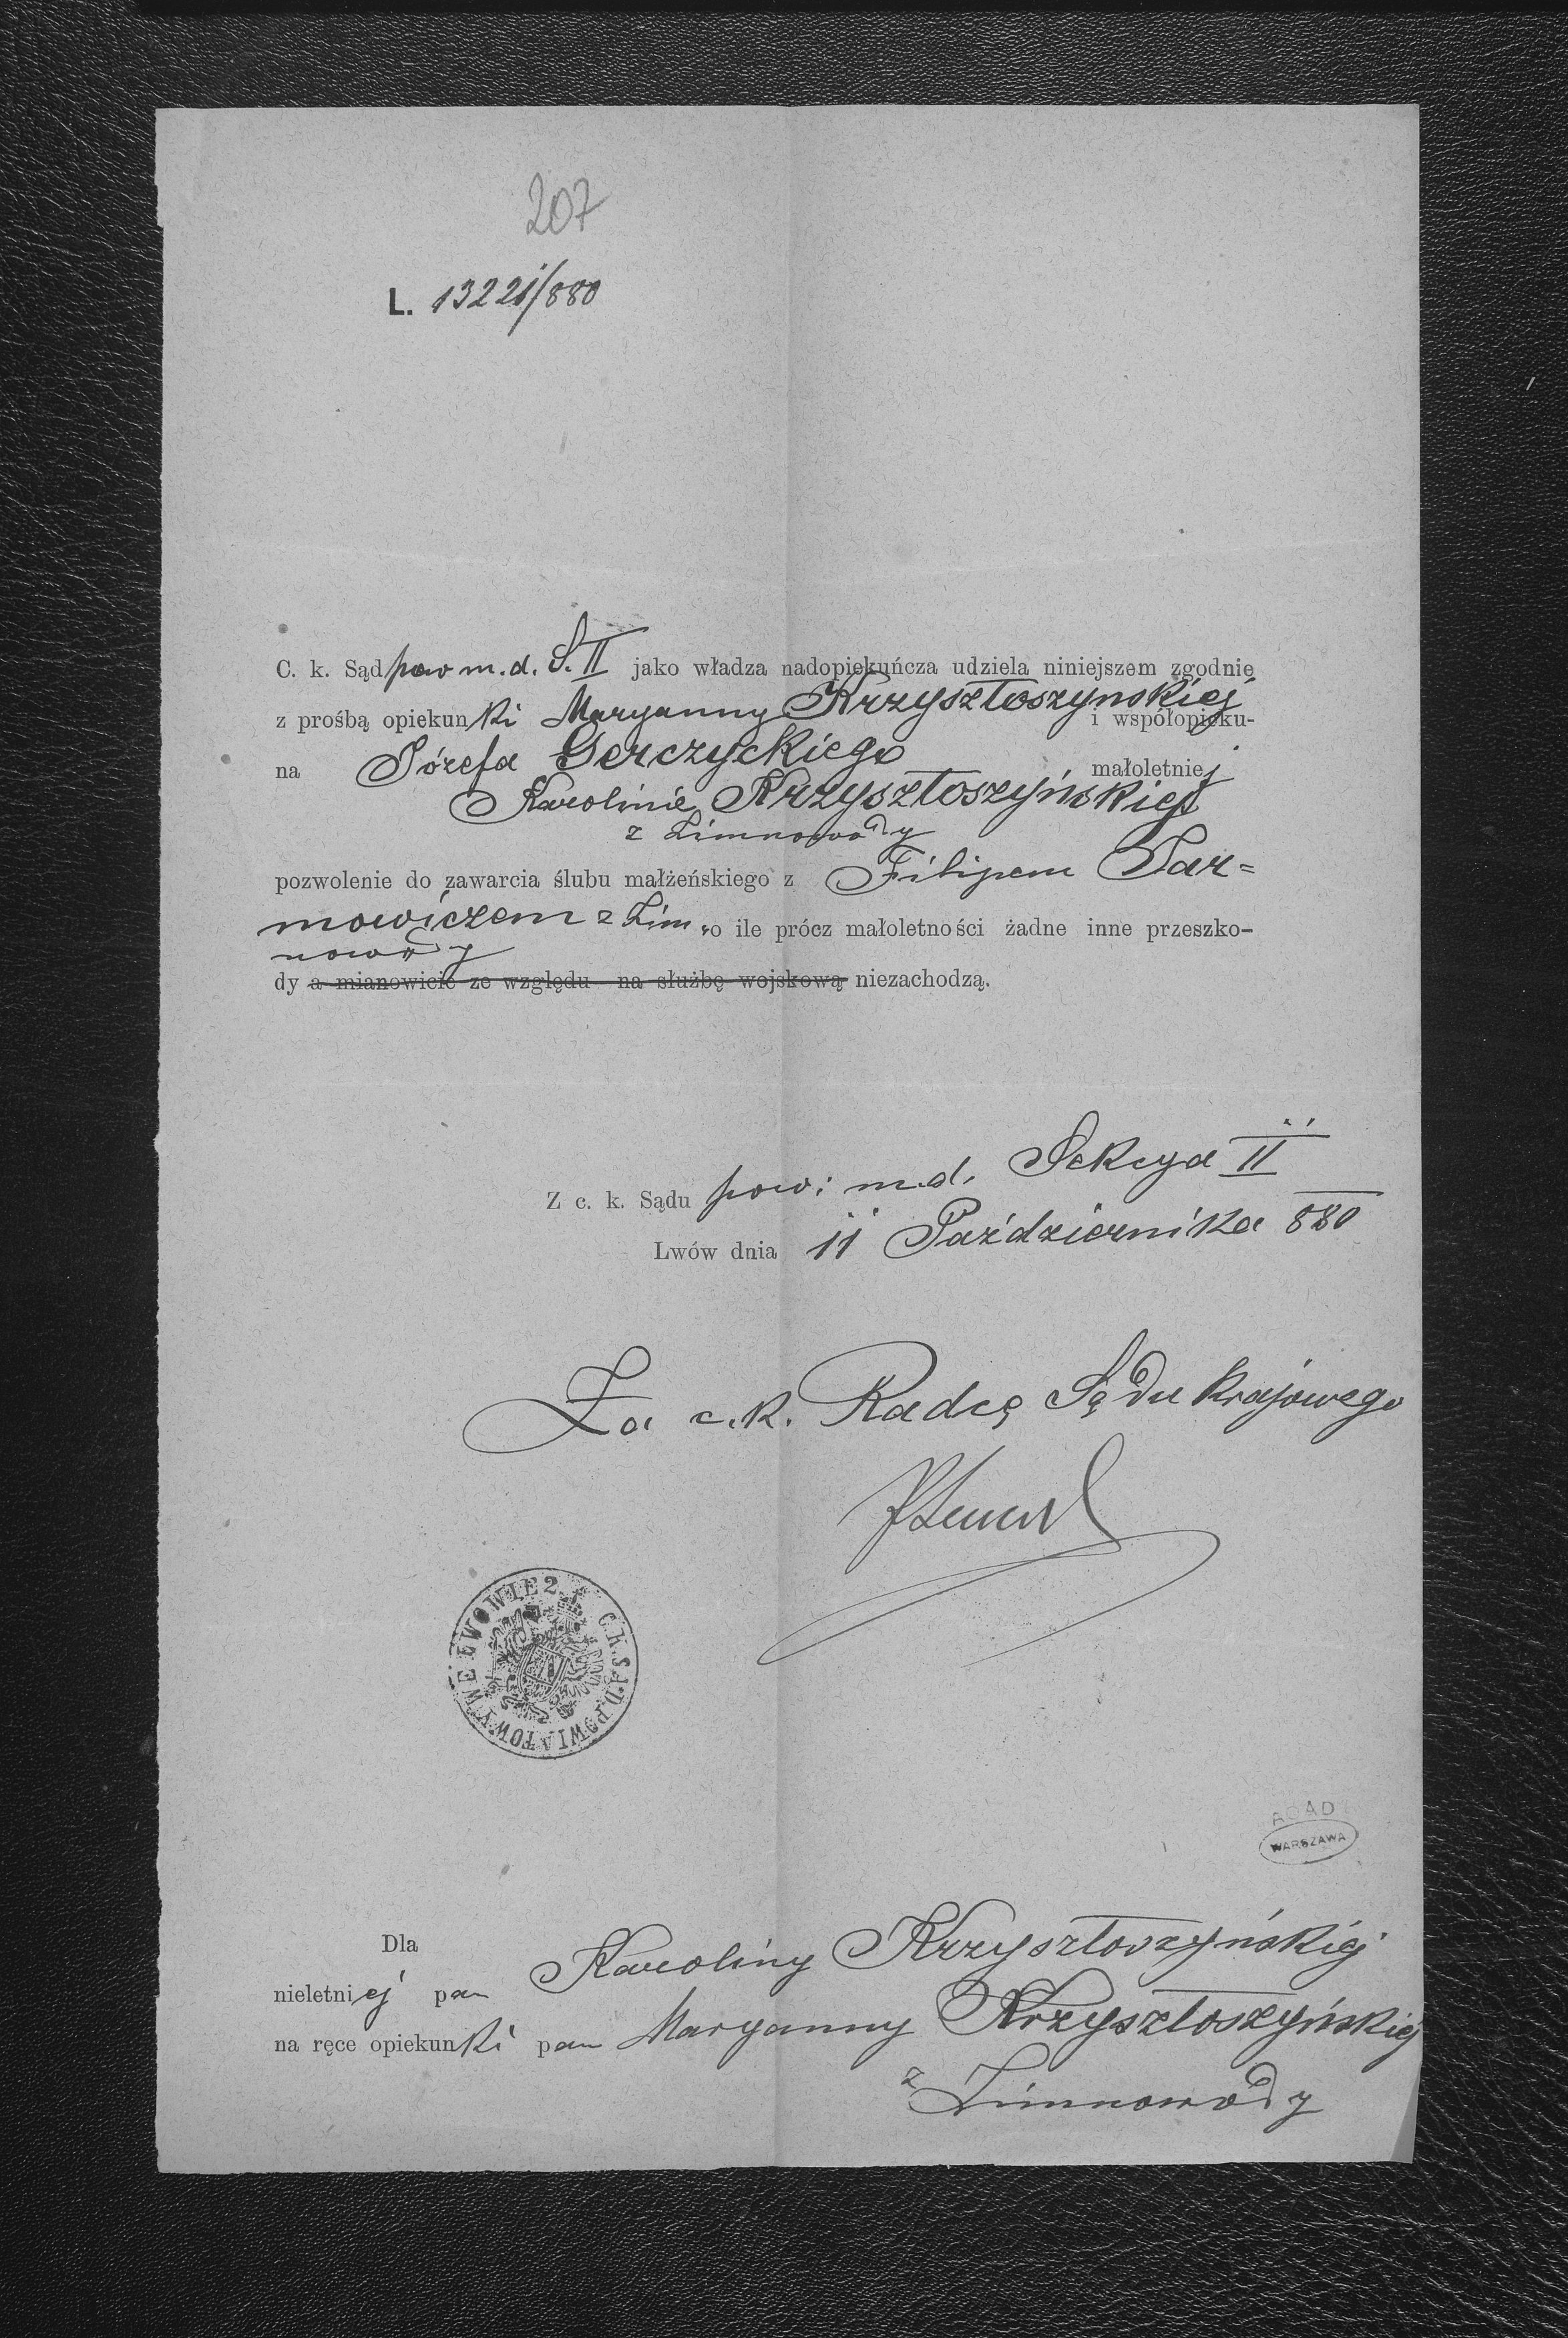 207
L. 13221/880
C. k. Sąd pow m. d. S. II jako władza nadopiekuńcza udziela niniejszem zgodnie
z prośbą opiekunki Maryanny Krzysztoszynskiej i współopieku-
na Józefa Gerczyckiego małoletniej
Karolinie Krzysztoszyńskiej
z Zimnowody
pozwolenie do zawarcia ślubu małżeńskiego z Filipem Tar=
mowiczem z Zim, o ile prócz małoletności żadne inne przeszko-
nowody
dy a mianowicie ze względu na służbę wojskową niezachodzą.
Z c. k. Sądu pow: m. d. Sekcya II
Lwów dnia 11 Października 880
Za c. k. Radcę Sądu krajowego
C. K. SĄD POWIATOWY WE LWOWIE 2
AGAD
WARSZAWA
Dla
nieletniej pan Karoliny Krzysztoszyńskiej
na ręce opiekunki pan Maryanny Krzysztoszyńskiej
z Zimnowody